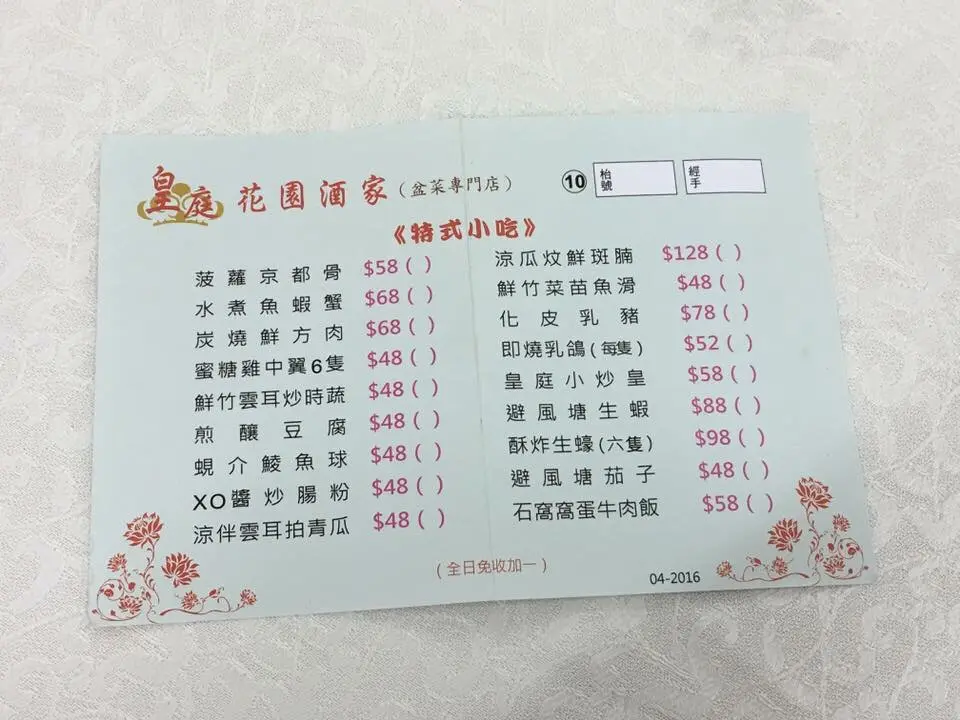 皇庭花園酒家(盆菜專門店)
⑩ 枱號 經手
《特式小吃》
菠蘿京都骨 $58 ( )
水煮魚蝦蟹 $68 ( )
炭燒鮮方肉 $68 ( )
蜜糖雞中翼6隻 $48 ( )
鮮竹雲耳炒時蔬 $48 ( )
煎釀豆腐 $48 ( )
蜆介鯪魚球 $48 ( )
XO醬炒腸粉 $48 ( )
涼伴雲耳拍青瓜 $48 ( )
涼瓜炆鮮斑腩 $128 ( )
鮮竹菜苗魚滑 $48 ( )
化皮乳豬 $78 ( )
即燒乳鴿(每隻) $52 ( )
皇庭小炒皇 $58 ( )
避風塘生蝦 $88 ( )
酥炸生蠔(六隻) $98 ( )
避風塘茄子 $48 ( )
石窩窩蛋牛肉飯 $58 ( )
(全日免收加一)
04-2016